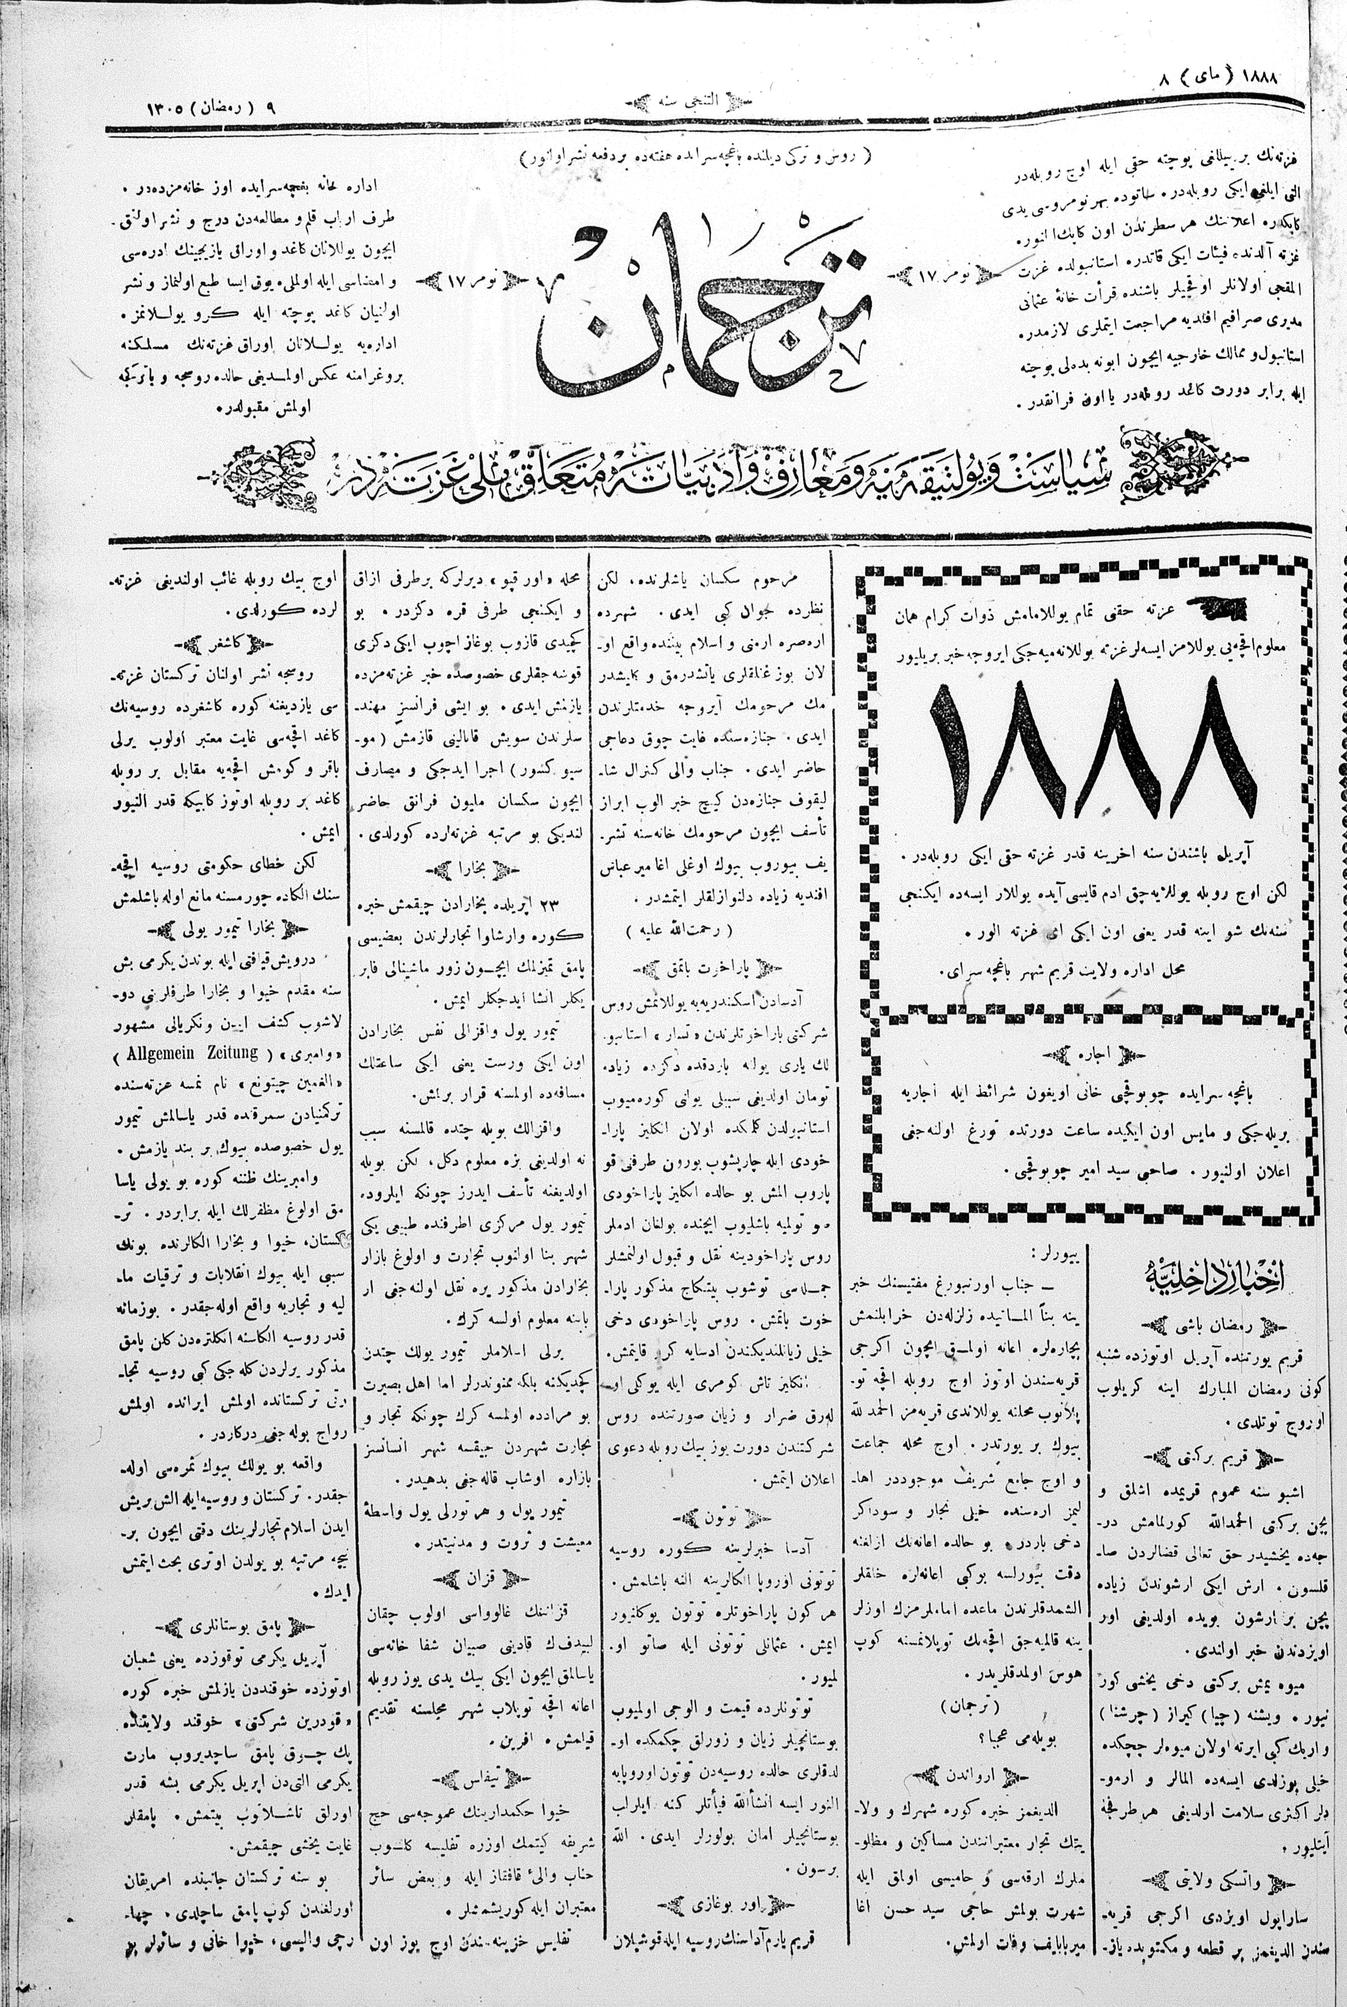 ١٨٨٨ (مای) ٨
التنجی سنه
٩ (رمضان) ١٣٠٥
غزته‌نك بر ییللغی پوچته حقی ایله اوچ روبله‌در
التی ایلغی ایكی روبله‌در. ساتوده بهر نومروسی یدی
كاپكدره اعلاننك هر سطرندن اون كاپك النور.
غزته آلدنده فیئات ایكی قاتدره استانبولده غزت
المقچی اولانلر اوقچیلر باشنده قرأت خانهٔ عثمانی
مدیری صرافیم افندیه مراجعت ایتملری لازمدر.
استانبول و ممالك خارجیه ایچون ابونه بدلی پوچته
ایله برابر دورت كاغد روبله‌در یا اون فرانقدر.
(روس و تركی دیلنده باغچه‌سرایده هفته‌ده بر دفعه نشر اولنور)
نومر ١٧
ترجمان
نومر ١٧
اداره خانه بغچه‌سرایده اوز خانه‌مزده‌در.
طرف ارباب قلم و مطالعه‌دن درج و نشر اولنق
ایچون یوللانان كاغد و اوراق یازیجینك ادره‌سی
و امضاسی ایله اولملی. یوق ایسا طبع اولنماز و نشر
اولنیان كاغد پوچته ایله كرو یوللانمز.
اداره‌یه یوللانان اوراق غزته‌نك مسلكنه
پروغرامنه عكس اولمدیغی حالده روسجه و یا تركجه
اولمش مقبولدر.
سیاست و پولتیقه‌یه و معارف و ادبیاته متعلق ملی غزته‌در
غزته حقی تمام یوللامامش ذوات كرام همان
معلوم اقچه‌یی یوللامز ایسه‌لر غزته یوللانه‌میه‌جكی ایروجه خبر بریلیور
١٨٨٨
آپریل باشندن سنه اخرینه قدر غزته حقی ایكی روبله‌در.
لكن اوچ روبله یوللایه‌جق ادم قایسی آیده یوللار ایسه‌ده ایكنجی
سنه‌نك شو اینه قدر یعنی اون ایكی ای غزته الور.
محل اداره ولایت قریم شهر باغچه سرای.
اجاره
باغچه سرایده چوبوقچی خانی اویغون شرائط ایله اجاریه
بریله‌جكی و مایس اون ایكیده ساعت دورتده تورغ اولنه‌جغی
اعلان اولنیور. صاحبی سید امیر چوبوقچی.
اخبار داخلیه
رمضان باشی
قریم یورتنده آپریل اوتوزده شنبه
كونی رمضان المبارك اینه كریلوب
اوروج توتلدی.
قریم بركتی
اشبو سنه عموم قریمده اشلق و
پچن بركتی الحمدالله كورلمامش در
جه‌ده یخشیدر حق تعالی قضالردن صا
قلسون. ارش ایكی ارشوندن زیاده
پچن بر ارشون بویده اولدیغی اور
اویزدندن خبر اولندی.
میوه یمش بركتی دخی یخشی كور
نیور. ویشنه (چیا) كیراز (چرشنا)
و اریك كبی ایرته اولان میوه‌لر چچكده
خیلی بوزلدی ایسه‌ده المالر و ارمو
دلر اكثری سلامت اولدیغی هر طرفجه
آیتلیور.
واتسكی ولایتی
ساراپول اویزدی اكرجی قریه
سندن الدیغمز بر قطعه و مكتوبده یاز
ییورلر:
— جناب اورنبورغ مفتیسنك خبر
ینه بنأ الماتیده زلزله‌دن خرابلنمش
بچاره‌لره اعانه اولمق ایچون اكرجی
قریه‌سندن اوتوز اوچ روبله اقچه تو
پلانوب محلنه یوللاندی قریه‌مز الحمد لله
بیوك بر یورتدر. اوچ محله جماعت
و اوچ جامع شریف موجوددر اها
لیمز اره‌سنده خیلی تجار و سوداكر
دخی باردر. بو حالده اعانه‌نك ازلغنه
دقت بیورلسه بوكبی اعانه‌لره خلقلر
الشمدقلرندن ماعده اماملرمزك اوزلر
ینه قالمیه‌جق اقچه‌نك توپلانمسنه كوپ
هوس اولمدقلریدر.
(ترجمان)
بویله‌می عجبا؟
ارواندن
الدیغمز خبره كوره شهرك و ولا
یتك تجار معتبرانندن مساكین و مظلو
ملرك ارقه‌سی و حامیسی اولمق ایله
شهرت بولمش حاجی سید حسن آغا
میربابایف وفات اولمش.
مرحوم سكسان یاشلرنده، لكن
نظرده جوان كبی ایدی. شهرده
اره‌صره ارمنی و اسلام بیننده واقع او
لان بوزغنلقلری یاتشدرمق و كلیشدر
مك مرحومك آیروجه خدمتلرندن
ایدی. جنازه‌سنده غایت چوق دعاجی
حاضر ایدی. جناب والی كنرال شا
لیقوف جنازه‌دن كیچ خبر الوب ابراز
تأسف ایچون مرحومك خانه‌سنه تشر
یف بیوروب بیوك اوغلی اغا میر عباس
افندیه زیاده دلنوازلقلر ایتمشدر.
(رحمت‌الله علیه)
پاراخوت باتمق
آدسادن اسكندریه‌یه یوللانمش روس
شركتی پاراخوتلرندن «تسار» استانبو
لك یاری یولنه باردقده دكزده زیاده
تومان اولدیغی سببلی یولنی كوره‌میوب
استانبولدن كلمكده اولان انكلیز پارا
خودی ایله چارپشوب بورون طرفنی قو
پاروب المش بو حالده انكلیز پاراخودی
صو تولمیه باشلیوب ایچنده بولنان ادملر
روس پاراخودینه نقل و قبول اولنمشلر
جمله‌سی توشوب بیتنكاج مذكور پارا
خوت باتمش. روس پاراخودی دخی
خیلی زیانلندیكندن ادسایه كری قایتمش.
انكلیز تاش كومری ایله یوكلی او
له‌رق ضرار و زیان صورتنده روس
شركتندن دورت یوز بیك روبله دعوی
اعلان ایتمش.
توتون
آدسا خبرلرینه كوره روسیه
توتونی اوروپا الكالرینه النه باشلمش.
هر كون پاراخوتلره توتون یوكلنیور
ایمش. عثمانلی توتونی ایله صاتو او
لمیور.
توتونلرده قیمت و الوجی اولمیوب
بوستانچیلر زیان و زورلق چكمكده او
لدقلری حالده روسیه‌دن توتون اوروپایه
النور ایسه انشأالله فیأتلر كنه ایلرلب
بوستانچیلر امان بولورلر ایدی. الله
برسون.
اور بوغازی
قریم یارم آداسنك روسیه ایله قوشیلان
محله «اور قپو» دیرلركه بر طرفی ازاق
و ایكنجی طرفی قره دكزدر. بو
كچیدی قازوب بوغاز اچوب ایكی دكزی
قوشه‌جقلری خصوصده خبر غزته‌مزده
یازلمش ایدی. بو ایشی فرانسز مهند
سلرندن سویش قنالینی قازمش (مو
سیو كسور) اجرا ایده‌جكی و مصارف
ایچون سكسان ملیون فرانق حاضر
لندیكی بو مرتبه غزته‌لرده كورلدی.
بخارا
٢٣ اپریلده بخارادن چیقمش خبره
كوره وارشاوا تجارلرندن بعضیسی
پامق تمیزلمك ایچون زور ماشینالی فابر
یكلر انشا ایده‌جكلر ایمش.
تیمور یول واقزالی نفس بخارادن
اون ایكی ورست یعنی ایكی ساعتلك
مسافه‌ده اولمسنه قرار برلمش.
واقزالك بویله چتده قالمسنه سبب
نه اولدیغی بزه معلوم دكل، لكن بویله
اولدیغنه تأسف ایدرز چونكه ایلروده
تیمور یول مركزی اطرفنده طبیعی یكی
شهر بنا اولنوب تجارت و اولوغ بازار
بخارادن مذكور یره نقل اولنه‌جغی ار
بابنه معلوم اولسه كرك.
یرلی اسلاملر تیمور یولك چتدن
كچدیكنه بلكه ممنوندرلر اما اهل بصیرت
بو مرادده اولمسه كرك چونكه تجار و
تجارت شهردن چیقسه شهر انسانسز
بازاره اوشاب قاله‌جغی بدهیدر.
تیمور یول و هر تورلی یول واسطهٔ
معیشت و ثروت و مدنیتدر.
قزان
قزاننك غالوواسی اولوب چقان
لبیدفك قادینی صبیان شفا خانه‌سی
یاسالمق ایچون ایكی بیك یدی یوز روبله
اعانه اقچه توپلاب شهر مجلسنه تقدیم
قیلمش. افرین.
تیفلس
خیوا حكمدارینك عموجه‌سی حج
شریفه كیتمك اوزره تفلیسه كلوب
جناب والیٔ قافقاز ایله و بعض سائر
معتبران ایله كوریشمشلر.
تفلیس خزینه‌سندن اوچ یوز اون
اوچ بیك روبله غائب اولندیغی غزته
لرده كورلدی.
كاشغر
روسجه نشر اولنان تركستان غزته
سی یازدیغنه كوره كاشغرده روسیه‌نك
كاغد اقچه‌سی غایت معتبر اولوب یرلی
باقر و كومش اقچه‌یه مقابل بر روبله
كاغد بر روبله اوتوز كاپیكه قدر النیور
ایمش.
لكن خطای حكومتی روسیه اقچه
سنك الكاده چورمسنه مانع اوله باشلمش
بخارا تیمور یولی
درویش قیافتی ایله بوندن یكرمی بش
سنه مقدم خیوا و بخارا طرفلرینی دو
لاشوب كشف ایین ونكریالی مشهور
«وامبری» (Allgemein Zeitung)
«الغمین چیتونغ» نام نمسه غزته‌سنده
تركمنیادن سمرقنده قدر یاسالمش تیمور
یول خصوصده بیوك بر بند یازمش.
وامبرینك ظننه كوره بو یولی یاسا
مق اولوغ مظفرلك ایله برابردر. تر
كستان، خیوا و بخارا الكالرنده بونك
سببی ایله بیوك انقلابات و ترقیات ما
لیه و تجاریه واقع اوله‌جقدر. بو زمانه
قدر روسیه الكاسنه انكلتره‌دن كلن پامق
مذكور یرلردن كله‌جكی كبی روسیه تجا
رتی تركستانده اولمش ایرانده اولمش
رواج بوله‌جغی دركاردر.
واقعه بو یولك بیوك ثمره‌سی اوله
جقدر. تركستان و روسیه ایله الش بریش
ایدن اسلام تجارلرینك دقتی ایچون بر
نیچه مرتبه بو یولدن اوتری بحث ایتمش
ایدك.
پامق بوستانلری
آپریل یكرمی توقوزده یعنی شعبان
اوتوزده خوقنددن یازلمش خبره كوره
«قودرین شركتی» خوقند ولایتنده
پك چوق پامق ساچدیروب مارت
یكرمی التی‌دن اپریل یكرمی بشه قدر
اورلق تاشلانوب بیتمش. پامقلر
غایت یخشی چیقمش.
بو سنه تركستان جانبنده امریقان
اورلغندن كوپ پامق ساچلدی. چها
رجی والیسی، خیوا خانی و سائرلر بر